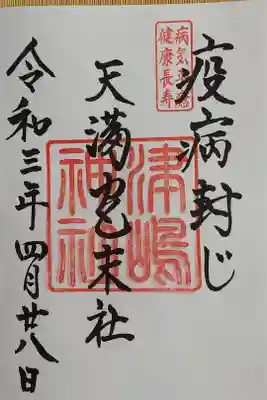 病気平癒
健康長寿
疫病封じ
天満宮末社
津嶋
神社
令和三年四月廿八日